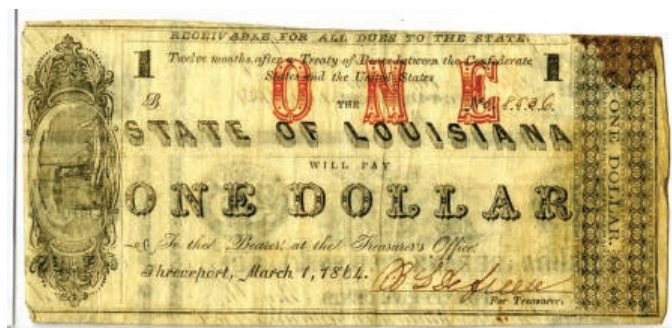 RECEIVABLE FOR ALL DUES TO THE STATE.
1 Twelve months after a Treaty of Peace between the Confederate 1
States and the United States
ONE
B. THE No.
STATE OF LOUISIANA
WILL PAY
ONE DOLLAR
To the Bearer, at the Treasurer's Office.
Shreveport, March 1, 1864.
For Treasurer.
ONE DOLLAR.